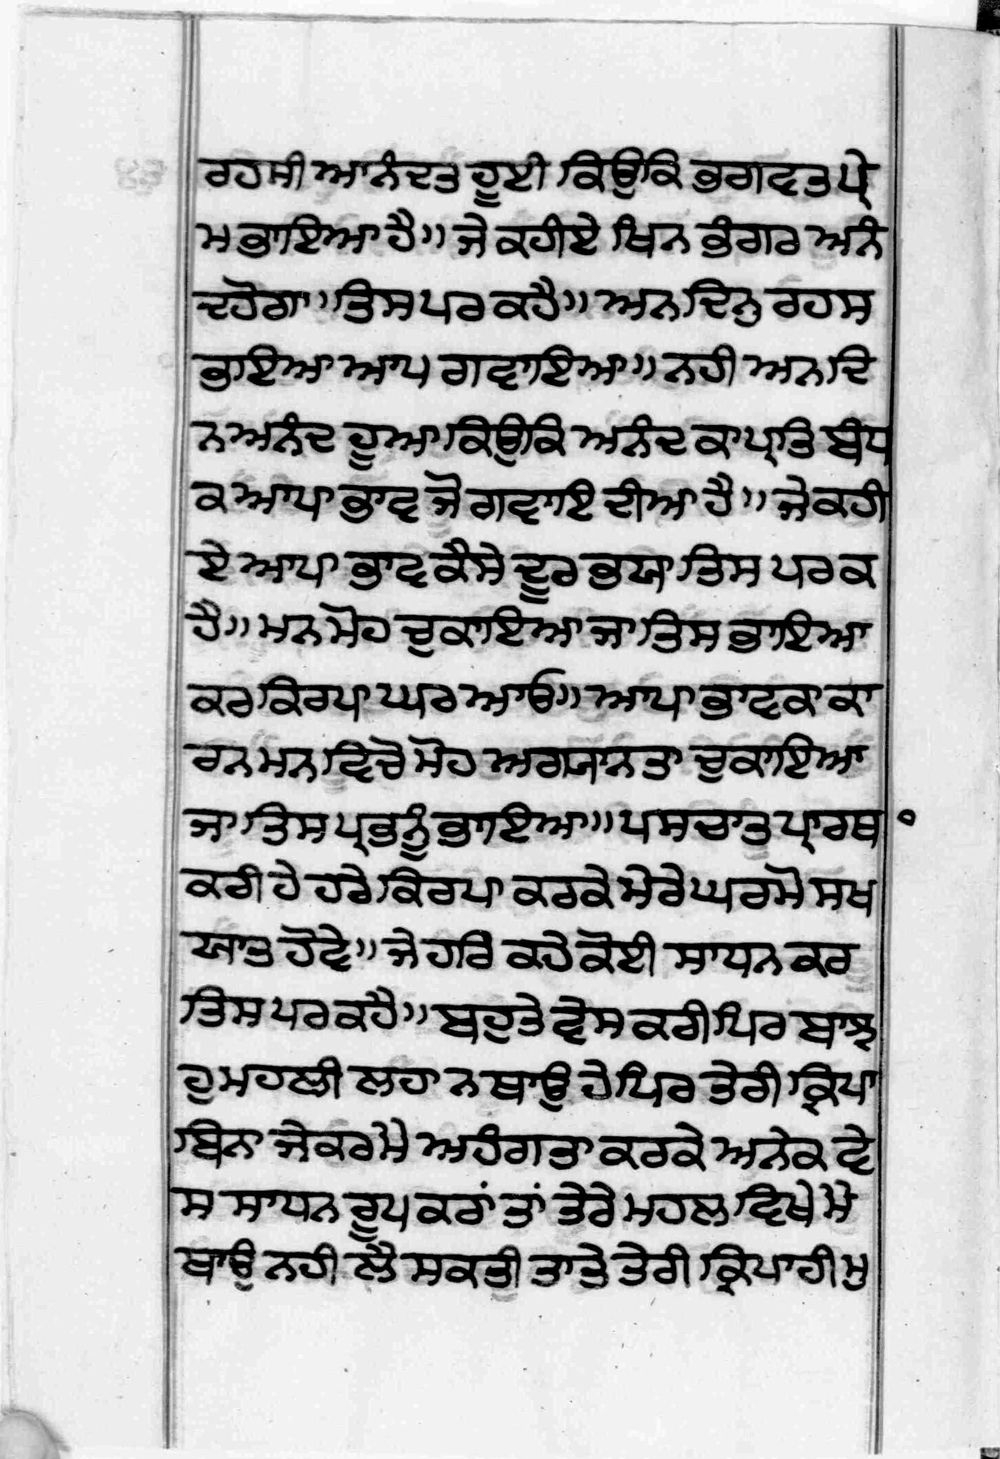 ਰਹਸੀ ਆਨੰਦਤ ਹੂਈ ਕਿਉਕਿ ਭਗਵਤ ਪ੍ਰੇ
ਮ ਭਾਇਆ ਹੈ॥ ਜੇ ਕਹੀਏ ਖਿਨ ਭੰਗਰ ਅਨੰ
ਦ ਹੋਗਾ॥ ਤਿਸ ਪਰ ਕਹੈ॥ ਅਨਦਿਨੁ ਰਹਸ
ਭਾਇਆ ਆਪ ਗਵਾਇਆ॥ ਨਹੀ ਅਨਦਿ
ਨ ਅਨੰਦ ਹੂਆ ਕਿਉਕਿ ਅਨੰਦ ਕਾ ਪ੍ਰਤਿ ਬੰਧ
ਕ ਆਪਾ ਭਾਵ ਜੋ ਗਵਾਇ ਦੀਆ ਹੈ॥ ਜੇ ਕਹੀ
ਏ ਆਪਾ ਭਾਵ ਕੈਸੇ ਦੂਰ ਭਯਾ ਤਿਸ ਪਰ ਕ
ਹੈ॥ ਮਨ ਮੋਹ ਚੁਕਾਇਆ ਜਾ ਤਿਸ ਭਾਇਆ
ਕਰ ਕਿਰਪਾ ਘਰ ਆਓ॥ ਆਪਾ ਭਾਵ ਕਾ ਕਾ
ਰਨ ਮਨ ਵਿਚੋ ਮੋਹ ਅਗਯਾਨਤਾ ਚੁਕਾਇਆ
ਜਾ ਤਿਸ ਪ੍ਰਭ ਨੂੰ ਭਾਇਆ॥ ਪਸਚਾਤ ਪ੍ਰਾਰਥ
ਕਰੀ ਹੇ ਹਰੇ ਕਿਰਪਾ ਕਰਕੇ ਮੇਰੇ ਘਰ ਮੋ ਸਖ
ਯਾਤ ਹੋਵੇ॥ ਜੇ ਹਰਿ ਕਹੇ ਕੋਈ ਸਾਧਨ ਕਰ
ਤਿਸ ਪਰ ਕਹੈ॥ ਬਹੁਤੇ ਵੇਸ ਕਰੀ ਪਿਰ ਬਾਝ
ਹੁ ਮਹਲੀ ਲਹਾ ਨ ਥਾਉ ਹੇ ਪਿਰ ਤੇਰੀ ਕ੍ਰਿਪਾ
ਬਿਨਾ ਜੇਕਰ ਮੈ ਅਹੰਗਤਾ ਕਰਕੇ ਅਨੇਕ ਵੇ
ਸ ਸਾਧਨ ਰੂਪ ਕਰਾਂ ਤਾਂ ਤੇਰੇ ਮਹਲ ਵਿਖੇ ਮੈ
ਥਾਉ ਨਹੀ ਲੈ ਸਕਤੀ ਤਾਤੇ ਤੇਰੀ ਕ੍ਰਿਪਾ ਹੀ ਮੁ